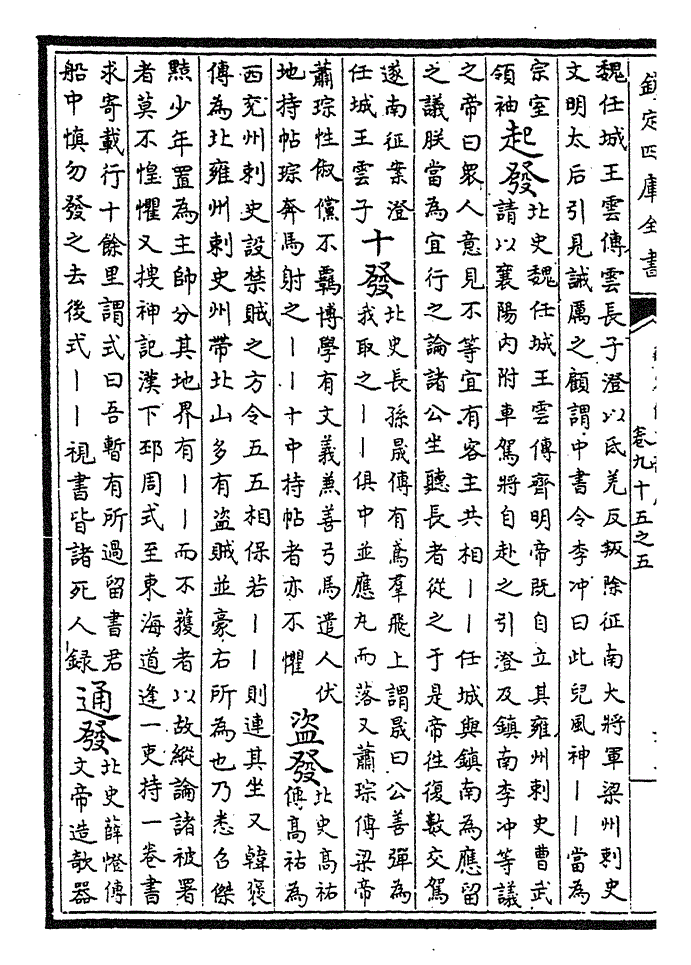 欽定四庫全書
卷九十五之五
魏任城王雲傳雲長子澄以氐羌反叛除征南大將軍梁州刺史
文明太后引見誡厲之顧謂中書令李冲曰此兒風神丨丨當為
宗室
領袖
起發
北史魏任城王雲傳齊明帝既自立其雍州刺史曹武
請以襄陽内附車駕將自赴之引澄及鎮南李冲等議
之帝曰衆人意見不等宜有客主共相丨丨任城與鎮南為應留
之議朕當為宜行之論諸公坐聽長者從之于是帝往復數交駕
遂南征案澄
任城王雲子
十發
北史長孫晟傳有鳶羣飛上謂晟曰公善彈為
我取之丨丨俱中並應丸而落又蕭琮傳梁帝
蕭琮性俶儻不羈博學有文義兼善弓馬遣人伏
地持帖琮奔馬射之丨丨十中持帖者亦不懼
盜發
北史高祐
傳高祐為
西兗州刺史設禁賊之方令五五相保若丨丨則連其坐又韓褒
傳為北雍州刺史州帶北山多有盜賊並豪右所為也乃悉召傑
黠少年置為主帥分其地界有丨丨而不獲者以故縱論諸被署
者莫不惶懼又搜神記漢下邳周式至東海道逢一吏持一卷書
求寄載行十餘里謂式曰吾暫有所過留書君
船中慎勿發之去後式丨丨視書皆諸死人録
通發
北史薛憕傳
文帝造欹器